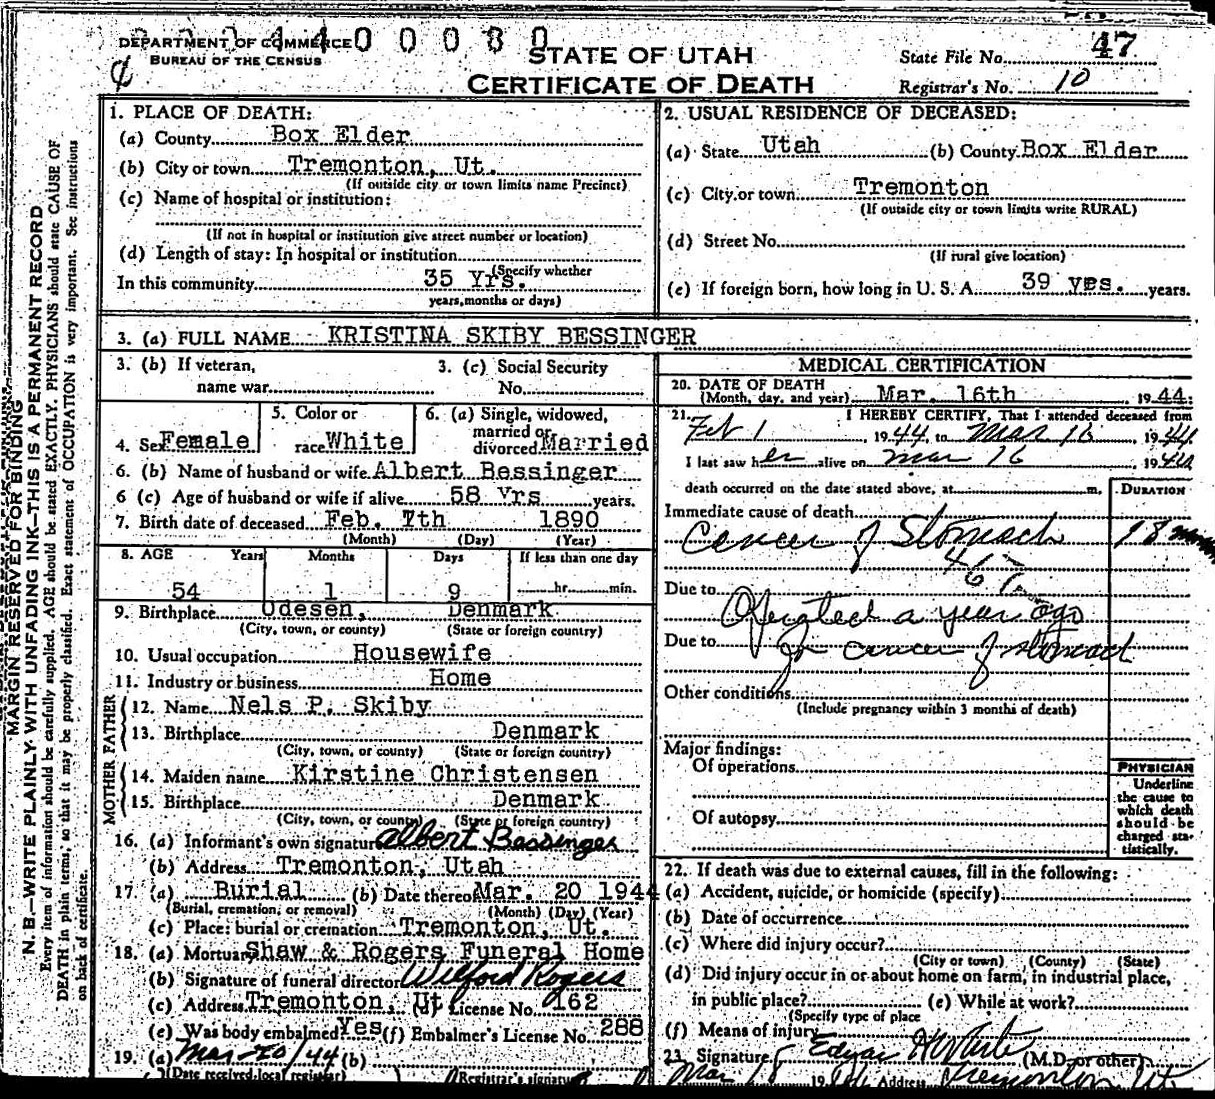 DEPARTMENT OF COMMERCE
BUREAU OF THE CENSUS
STATE OF UTAH
CERTIFICATE OF DEATH
State File No. 47
Registrar's No. 10
MARGIN RESERVED FOR BINDING
N. B.—WRITE PLAINLY WITH UNFADING INK—THIS IS A PERMANENT RECORD
Every item of information should be carefully supplied. AGE should be stated EXACTLY. PHYSICIANS should state CAUSE OF
DEATH in plain terms, so that it may be properly classified. Exact statement of OCCUPATION is very important. See instructions
on back of certificate.
1. PLACE OF DEATH:
(a) County Box Elder
(b) City or town Tremonton, Ut.
(If outside city or town limits name Precinct)
(c) Name of hospital or institution:
(If not in hospital or institution give street number or location)
(d) Length of stay: In hospital or institution
(Specify whether
In this community 35 Yrs.
years, months or days)
2. USUAL RESIDENCE OF DECEASED:
(a) State Utah (b) County Box Elder
(c) City or town Tremonton
(If outside city or town limits write RURAL)
(d) Street No.
(If rural give location)
(e) If foreign born, how long in U. S. A. 39 yrs. years.
3. (a) FULL NAME KRISTINA SKIBY BESSINGER
3. (b) If veteran,
name war
3. (c) Social Security
No.
4. Sex Female
5. Color or
race White
6. (a) Single, widowed,
married or
divorced Married
6. (b) Name of husband or wife Albert Bessinger
6 (c) Age of husband or wife if alive 58 Yrs years.
7. Birth date of deceased Feb. 7th 1890
(Month) (Day) (Year)
8. AGE Years Months Days If less than one day
54 1 9 hr. min.
9. Birthplace Odesen, Denmark
(City, town, or county) (State or foreign country)
10. Usual occupation Housewife
11. Industry or business Home
FATHER
12. Name Nels P. Skiby
13. Birthplace Denmark
(City, town, or county) (State or foreign country)
MOTHER
14. Maiden name Kirstine Christensen
15. Birthplace Denmark
(City, town, or county) (State or foreign country)
16. (a) Informant's own signature Albert Bessinger
(b) Address Tremonton, Utah
17. (a) Burial (b) Date thereof Mar. 20 1944
(Burial, cremation, or removal) (Month) (Day) (Year)
(c) Place: burial or cremation Tremonton, Ut.
18. (a) Mortuary Shaw & Rogers Funeral Home
(b) Signature of funeral director Wilford Rogers
(c) Address Tremonton, Ut (d) License No. 262
(e) Was body embalmed Yes (f) Embalmer's License No. 288
19. (a) Mar-20/44 (b)
(Date received local registrar) (Registrar's signature)
MEDICAL CERTIFICATION
20. DATE OF DEATH
(Month, day, and year) Mar. 16th, 1944.
21. I HEREBY CERTIFY, That I attended deceased from
Feb 1, 1944, to Mar 16, 1944
I last saw her alive on Mar 16, 1944
death occurred on the date stated above, at m.
DURATION
Immediate cause of death
Cancer of Stomach 18 mos
46
Due to
Operated a year ago
Due to for cancer of stomach
Other conditions
(Include pregnancy within 3 months of death)
Major findings:
Of operations
Of autopsy
PHYSICIAN
Underline
the cause to
which death
should be
charged sta-
tistically.
22. If death was due to external causes, fill in the following:
(a) Accident, suicide, or homicide (specify)
(b) Date of occurrence
(c) Where did injury occur?
(City or town) (County) (State)
(d) Did injury occur in or about home on farm, in industrial place,
in public place? (e) While at work?
(Specify type of place
(f) Means of injury
23. Signature Edgar H White (M.D. or other)
Mar 18 1944 Address Tremonton Ut